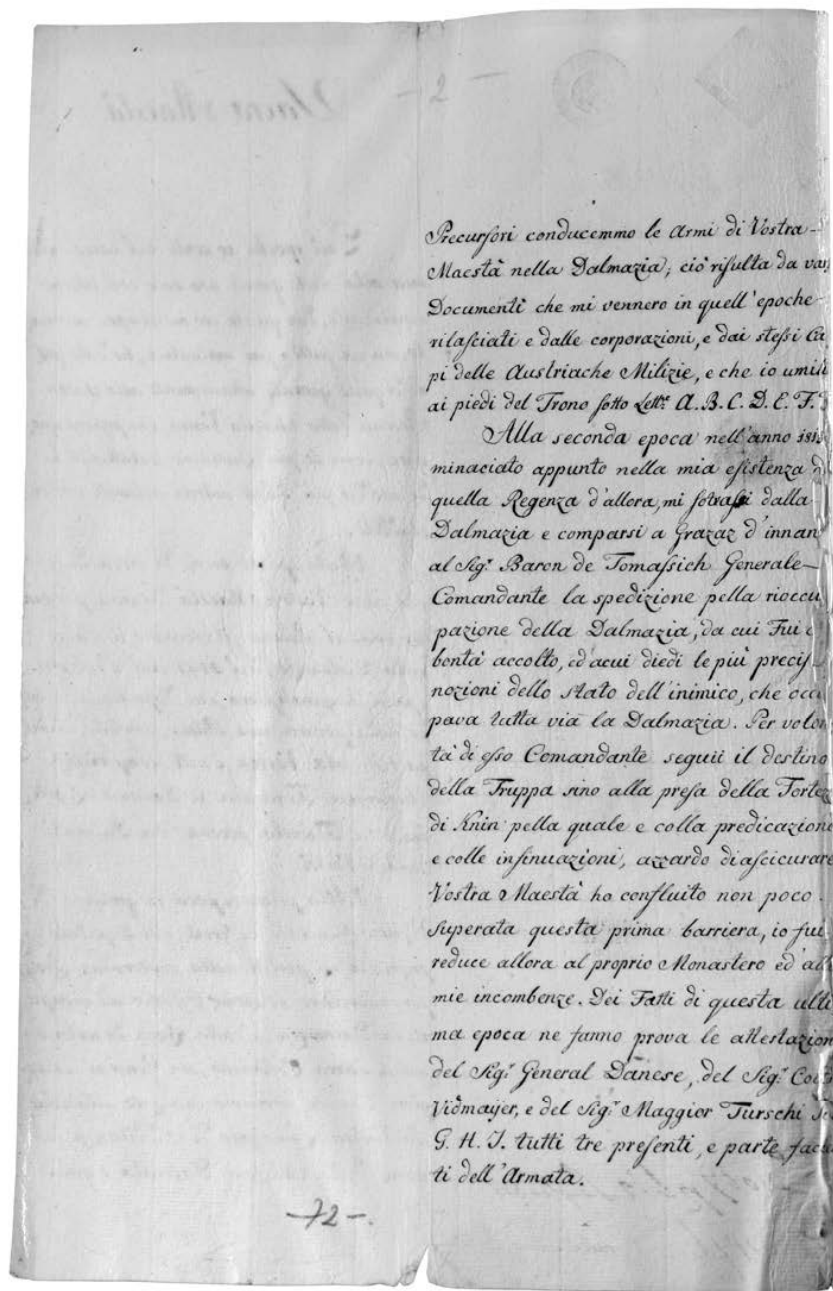 - 2 -
Precursori conducemmo le Armi di Vostra
Maestà nella Dalmazia; ciò risulta da var
Documenti che mi vennero in quell'epoche
rilasciati e dalle corporazioni, e dai stessi Ca
pi delle Austriache Milizie, e che io umili
ai piedi del Trono sotto Lett.e A. B. C. D. E. F.
Alla seconda epoca nell'anno 181
minaciato appunto nella mia esistenza d
quella Regenza d'allora, mi sotrassi dalla
Dalmazia e comparsi a Grazaz d'innan
al Sig.r Baron de Tomassich Generale
Comandante la spedizione pella rioccu
pazione della Dalmazia, da cui Fui
bontà accolto, ed'acui diedi le più precis
nozioni dello stato dell'inimico, che occu
pava tutta via la Dalmazia. Per volon
tà di esso Comandante seguii il destino
della Truppa sino alla presa della Fortez
di Knin pella quale e colla predicazione
e colle insinuazioni, azzardo di ascicurare
Vostra Maestà ho confluito non poco.
Superata questa prima barriera, io fui
reduce allora al proprio Monastero ed'al
mie incombenze. Dei Fatti di questa ulti
ma epoca ne fanno prova le attestazion
del Sig.r General Danese, del Sig.r
Vidmayer, e del Sig.r Maggior Turschi
G. H. I. tutti tre presenti, e parte fac
ti dell'Armata.
-72-.